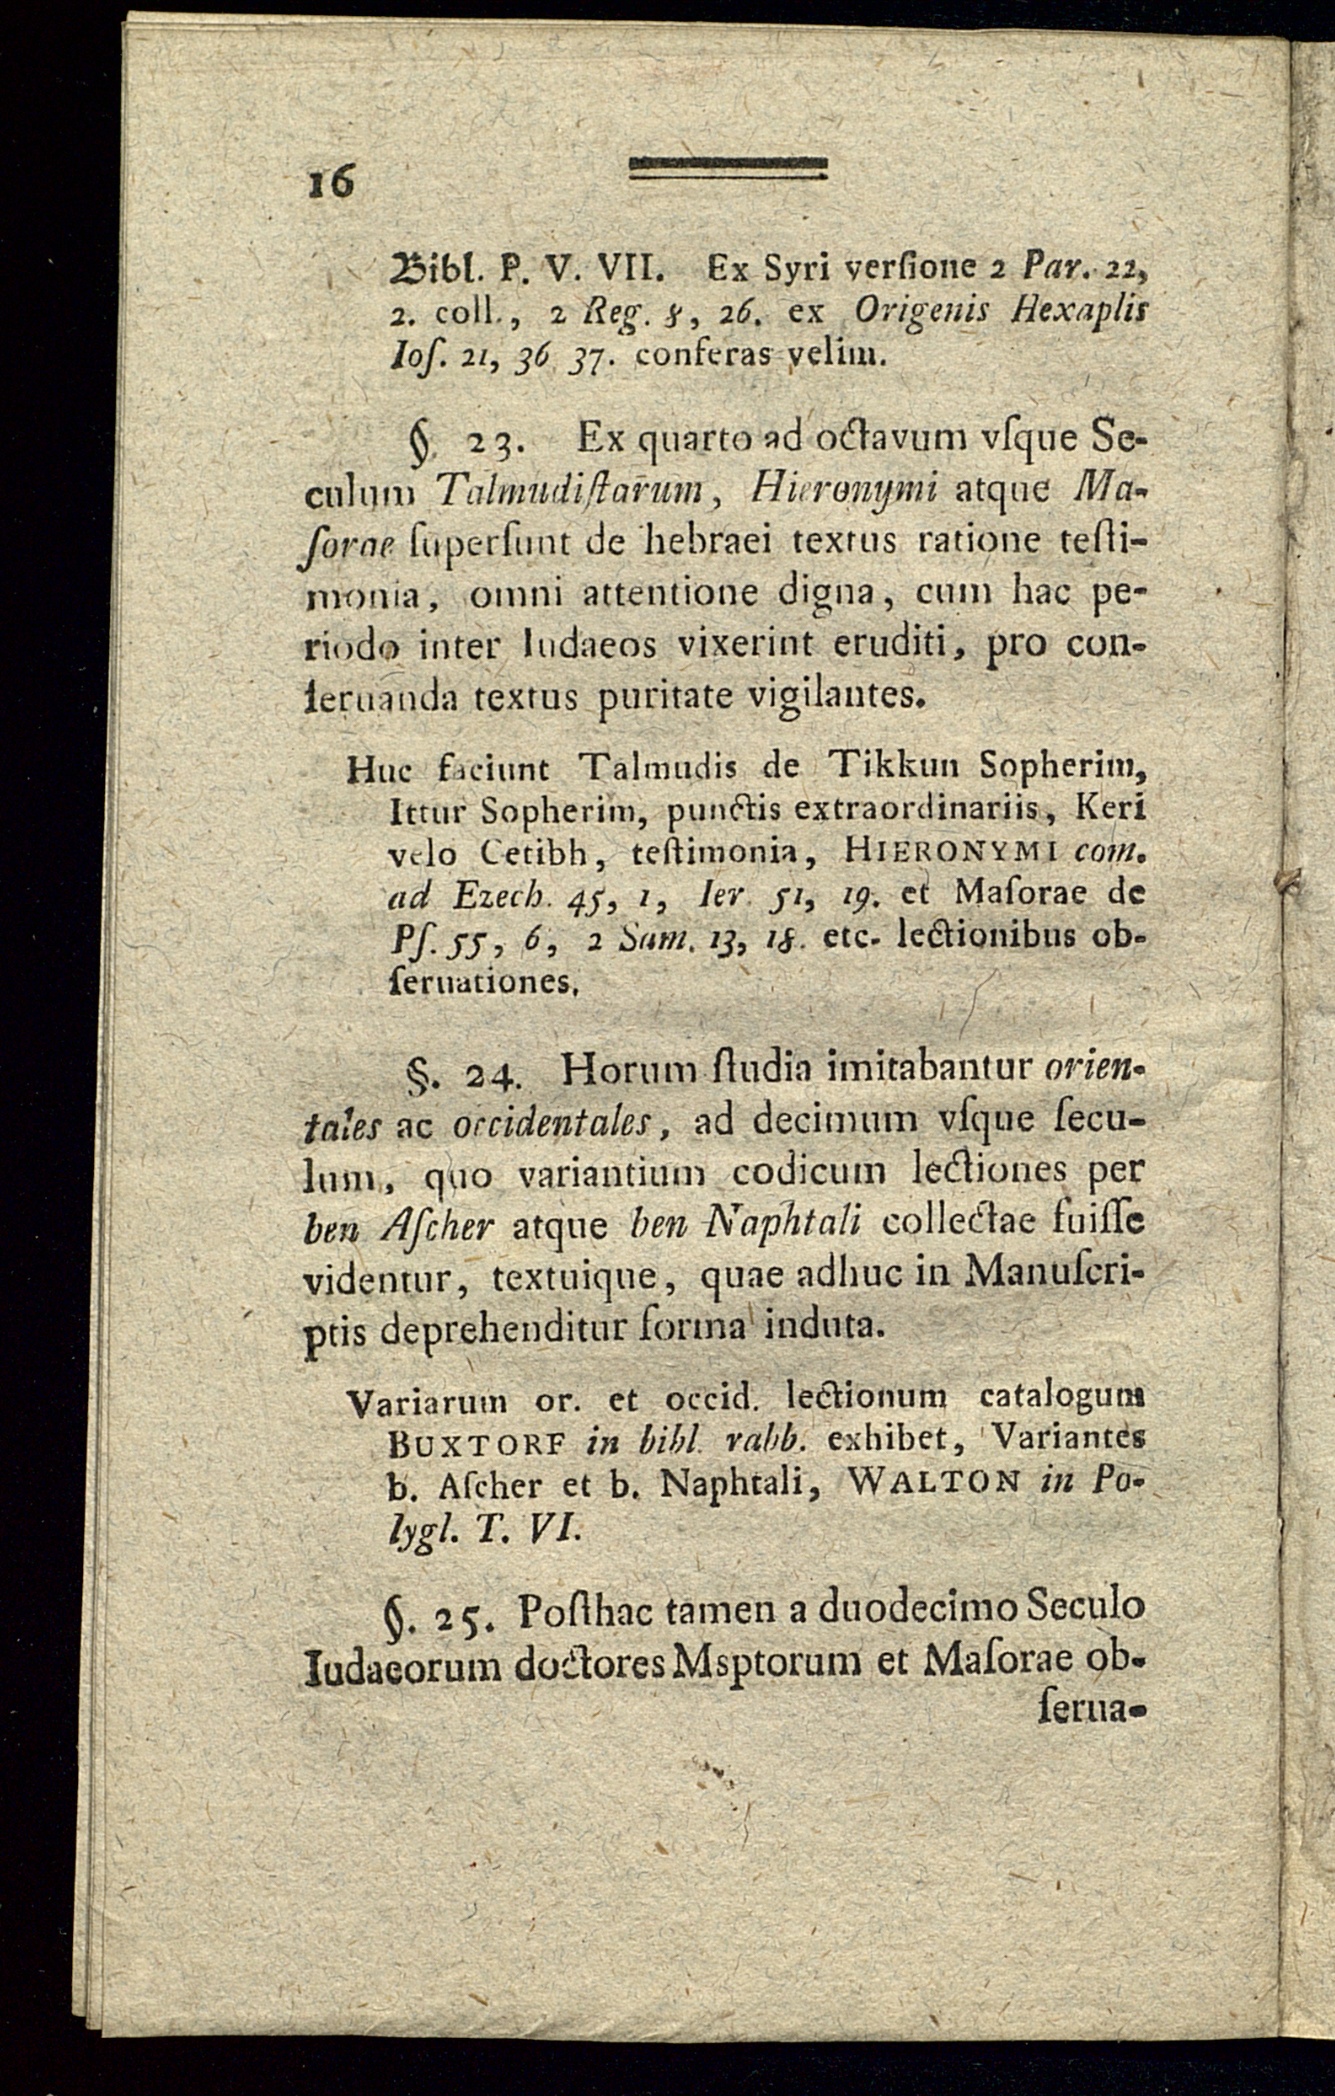 16
Bibl. P. V. VII. Ex Syri verſione 2 Par. 22,
2. coll., 2 Reg. 8, 26. ex Origenis Hexaplis
Ioſ. 21, 36 37. conferas velim.
§. 23. Ex quarto ad octavum vſque Se-
culum Talmudiſtarum, Hieronymi atque Ma-
ſorae ſuperſunt de hebraei textus ratione teſti-
monia, omni attentione digna, cum hac pe-
riodo inter Iudaeos vixerint eruditi, pro con-
ſeruanda textus puritate vigilantes.
Huc faciunt Talmudis de Tikkun Sopherim,
Ittur Sopherim, punctis extraordinariis, Keri
velo Cetibh, teſtimonia, HIERONYMI com.
ad Ezech. 45, 1, Ier. 51, 19. et Maſorae de
Pſ. 55, 6, 2 Sam. 13, 18. etc. lectionibus ob-
ſeruationes.
§. 24. Horum ſtudia imitabantur orien-
tales ac occidentales, ad decimum vſque ſecu-
lum, quo variantium codicum lectiones per
ben Aſcher atque ben Naphtali collectae fuiſſe
videntur, textuique, quae adhuc in Manuſcri-
ptis deprehenditur forma induta.
Variarum or. et occid. lectionum catalogum
BUXTORF in bibl. rabb. exhibet, Variantes
b. Aſcher et b. Naphtali, WALTON in Po-
lygl. T. VI.
§. 25. Poſthac tamen a duodecimo Seculo
Iudaeorum doctores Msptorum et Maſorae ob-
ſerua-